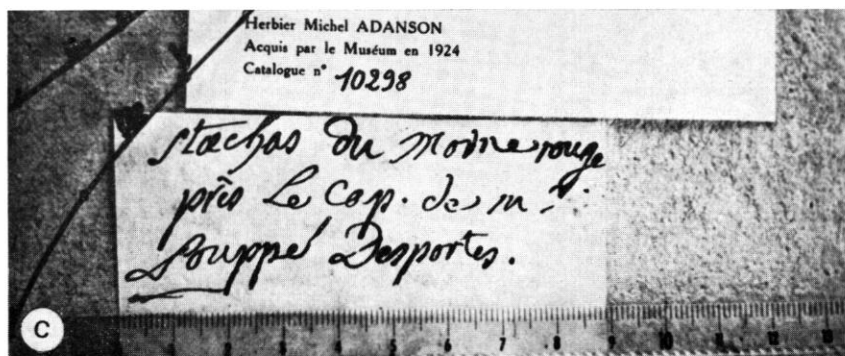 Herbier Michel ADANSON
Acquis par le Muséum en 1924
Catalogue n° 10298
stœchas du morne rouge
près Le Cap. de mr.
pouppé Desportes.
C
1 2 3 4 5 6 7 8 9 10 11 12 13